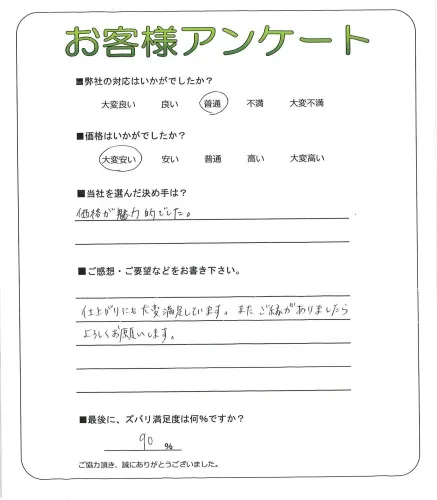 お客様アンケート
■弊社の対応はいかがでしたか？
大変良い 良い 普通 不満 大変不満
■価格はいかがでしたか？
大変安い 安い 普通 高い 大変高い
■当社を選んだ決め手は？
価格が魅力的でした。
■ご感想・ご要望などをお書き下さい。
仕上がりにも大変満足しています。またご縁がありましたら
よろしくお願いします。
■最後に、ズバリ満足度は何％ですか？
90 ％
ご協力頂き、誠にありがとうございました。